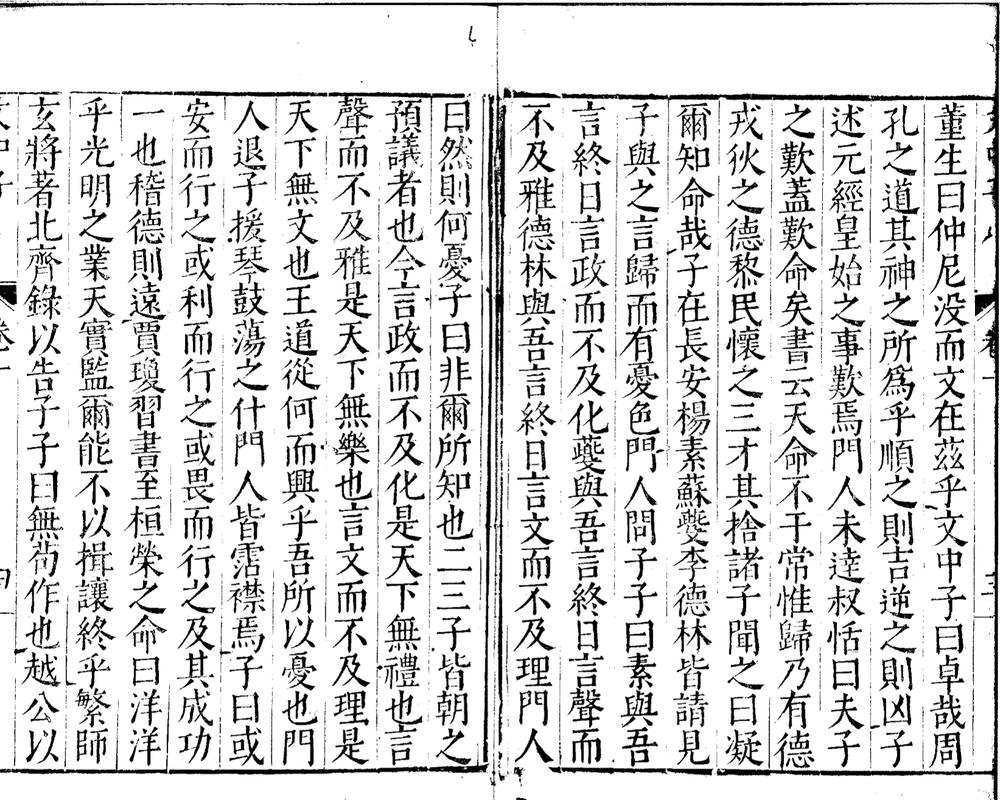 董生曰仲尼没而文在茲乎文中子曰卓哉周
孔之道其神之所爲乎順之則吉逆之則凶子
述元經皇始之事歎焉門人未達叔恬曰夫子
之歎蓋歎命矣書云天命不于常惟歸乃有德
戎狄之德黎民懷之三才其捨諸子聞之曰凝
爾知命哉子在長安楊素蘇夔李德林皆請見
子與之言歸而有憂色門人問子子曰素與吾
言終日言政而不及化夔與吾言終日言聲而
不及雅德林與吾言終日言文而不及理門人
曰然則何憂子曰非爾所知也二三子皆朝之
預議者也今言政而不及化是天下無禮也言
聲而不及雅是天下無樂也言文而不及理是
天下無文也王道從何而興乎吾所以憂也門
人退子援琴鼓蕩之什門人皆霑襟焉子曰或
安而行之或利而行之或畏而行之及其成功
一也稽德則遠賈瓊習書至桓榮之命曰洋洋
乎光明之業天實監爾能不以揖讓終乎繁師
玄將著北齊錄以告子子曰無苟作也越公以